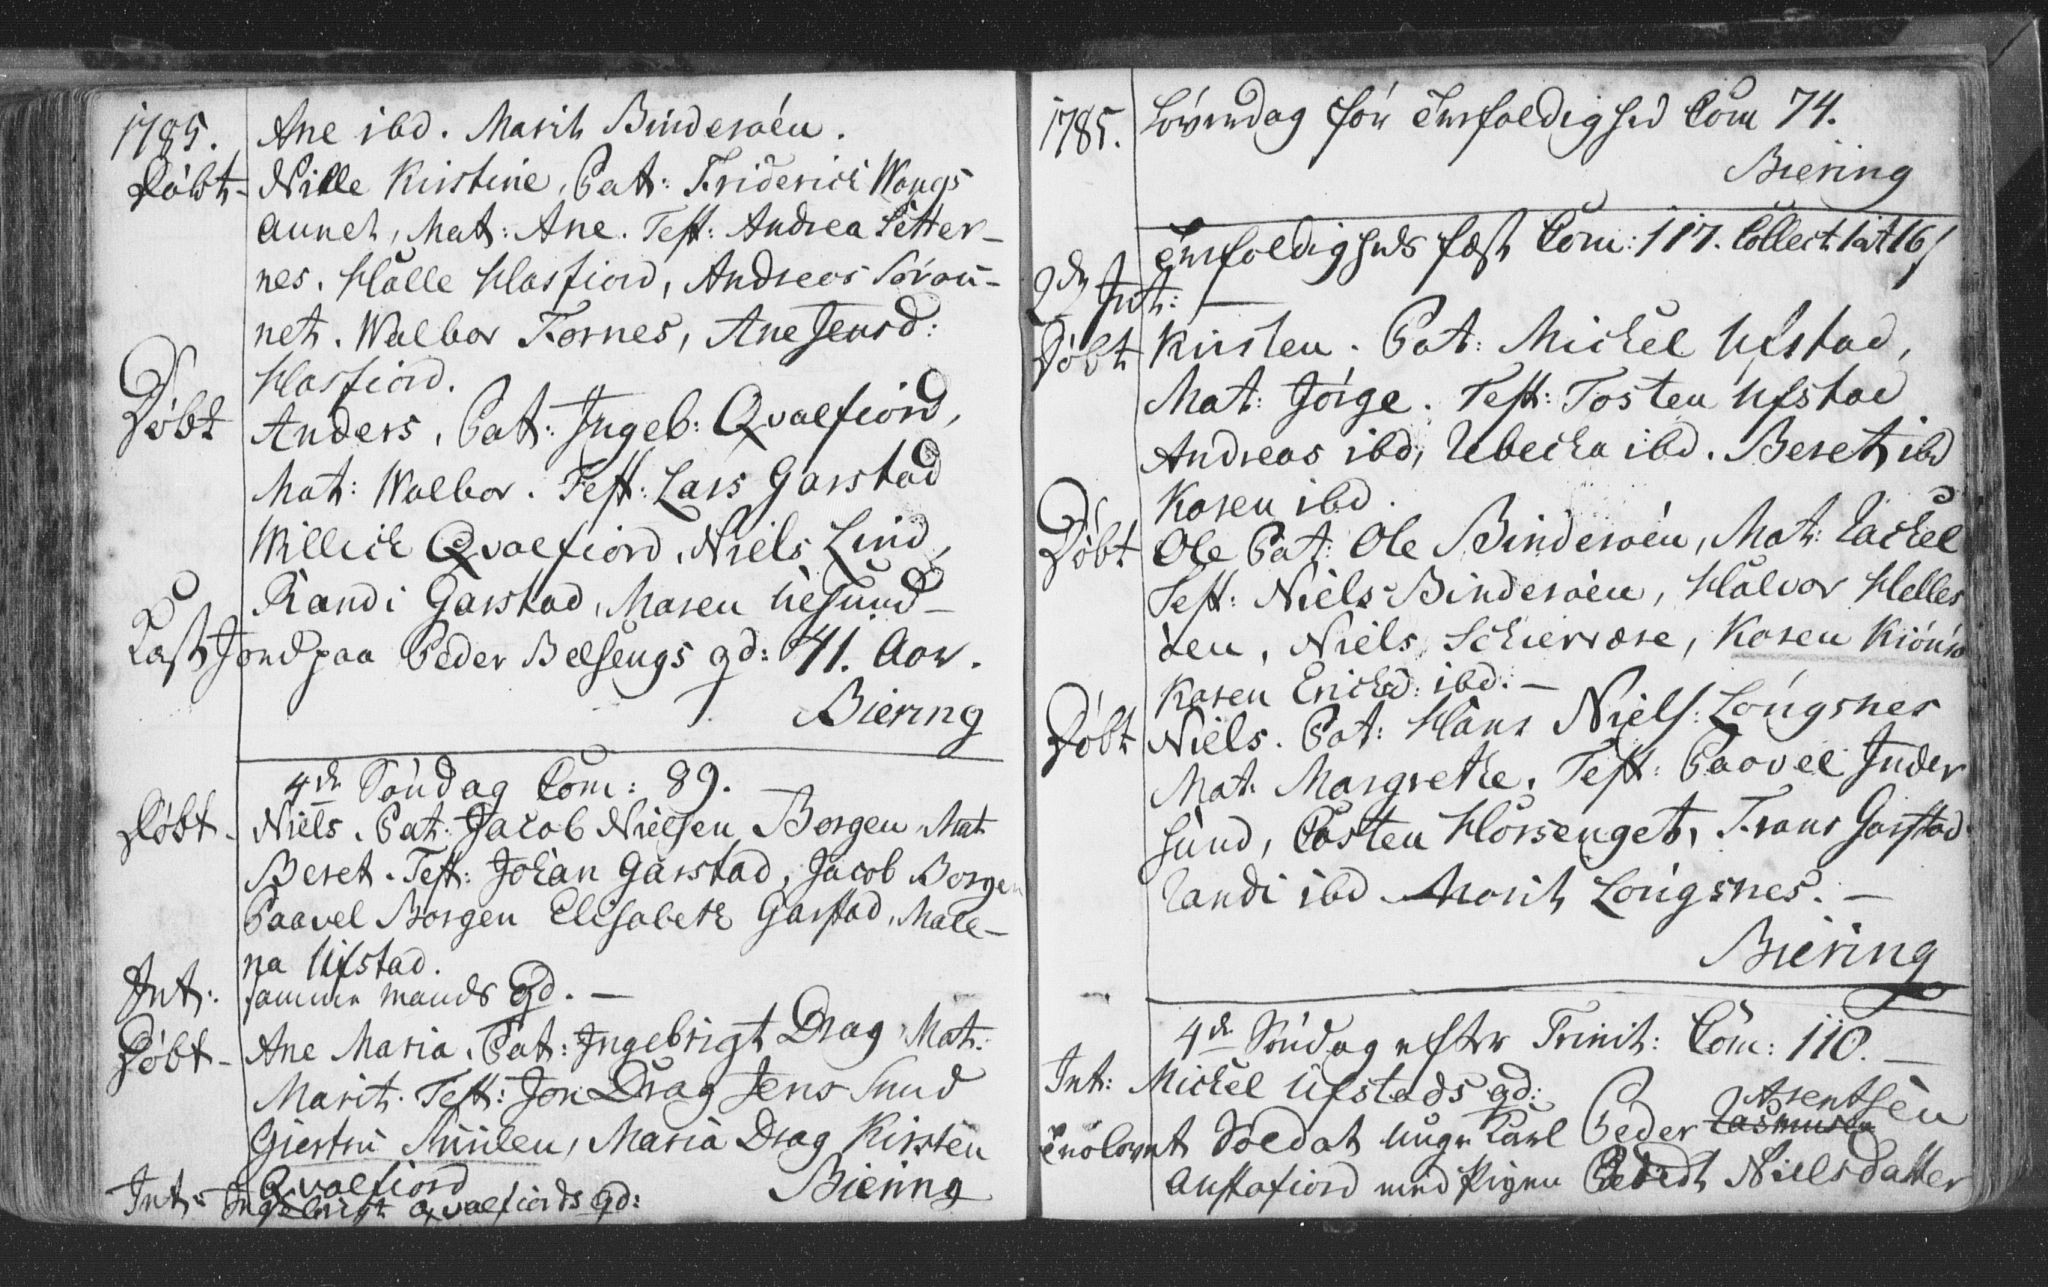 1785. Ane ibd. Marit Binderöen.
Döbt- Nille Kirstine, Pat: Friderich Wangs
aunet, Mat: Ane. Test: Andrea Setter-
nes. Halle Hasfiord, Andreas Söraü-
net. Walbor Tornes, Ane Jensd:
Hasfiord.
Döbt Anders, Pat: Ingeb: Qvalfiord,
Mat: Walbor. Test: Lars Garstad
Willich Qvalfiord, Niels Lind,
Randi Garstad, Maren Ulesund-
Kast Jord paa Peder Belsengs gd: 41. Aar.
Biering
4de Söndag Com: 89.
Döbt- Niels. Pat: Jacob Nielsen Borgen Mat
Beret. Test: Johan Garstad, Jacob Borgen
Paavel Borgen Elisabeth Garstad, Male-
na Ufstad.
Int: samme mands gd. -
Döbt- Ane Maria. Pat: Ingebrigt Drag, Mat:
Marit. Test: Jon Drag Jens Sund
Giertru, Maria Drag Kirsten
Qvalfiord
Biering
Int: Ingebrigt Qvalfiords gd:
1785. Löverdag för Trefoldighed Com 74.
Biering
Trefoldigheds fæst Com: 117. Collect 1 at 16 s
Int: -
Döbt Kirsten. Pat: Mickel Ufstad,
Mat: Jörge. Test: Tosten Ufstad
Andreas ibd, Rebecka ibd. Beret ibd
Karen ibd.
Döbt Ole Pat: Ole Binderöen, Mat: Rachel
Test: Niels Binderöen, Halvor Helles
den, Niels Schierwære, Karen Kiönsö
Karen Ericksd: ibd. -
Döbt Niels. Pat: Hans Niels: Löngsnes
Mat: Margrethe. Test: Paavel Inder
sund, Tosten Horsenget, Frans Garstad
Randi ibd Marit Löngsnes. -
Biering
4de Söndag efter Trinit: Com: 110. -
Int: Mickel Ufstads gd:
Arentsen
Trolovet Soldat unge Karl Peder Rasmusen
Austafiord med Pigen Beret Nielsdatter